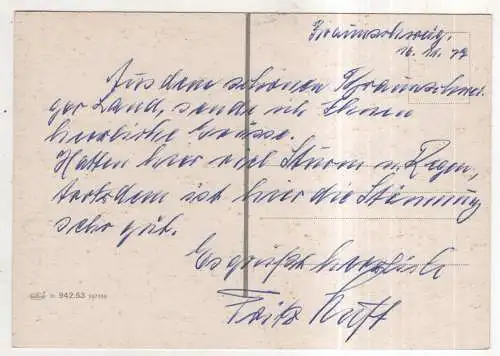 Braunschweig.
16.11.77
Aus dem schönen Braunschwei
ger Land, sende ich Ihnen
herrliche Grüsse.
Hatten hier viel Sturm u. Regen,
trotzdem ist hier die Stimmung
sehr gut.
Es grüßt herzlich
Fritz
942.53